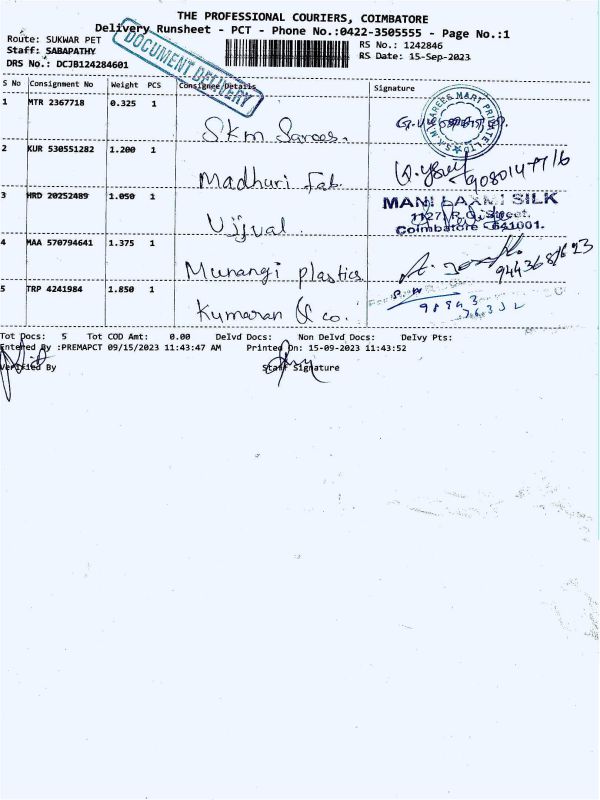 THE PROFESSIONAL COURIERS, COIMBATORE
Delivery Runsheet - PCT - Phone No.:0422-3505555 - Page No.:1
Route: SUKWAR PET
RS No.: 1242846
Staff: SABAPATHY
RS Date: 15-Sep-2023
DRS No.: DCJB124284601
DOCUMENT DELIVERY
S No Consignment No Weight PCS Consignee/Details Signature
1 MTR 2367718 0.325 1 Skm Sarees.
2 KUR 530551282 1.200 1 Madhuri Fab.
3 HRD 20252489 1.050 1 Ujjval
MANI LAXMI SILK
1127, R.G. Street,
Coimbatore - 641001.
4 MAA 570794641 1.375 1 Munangi plastics
5 TRP 4241984 1.850 1 Kumaran & co.
Tot Docs: 5 Tot COD Amt: 0.00 Delvd Docs: Non Delvd Docs: Delvy Pts:
Entered By :PREMAPCT 09/15/2023 11:43:47 AM Printed On: 15-09-2023 11:43:52
Verified By Staff Signature